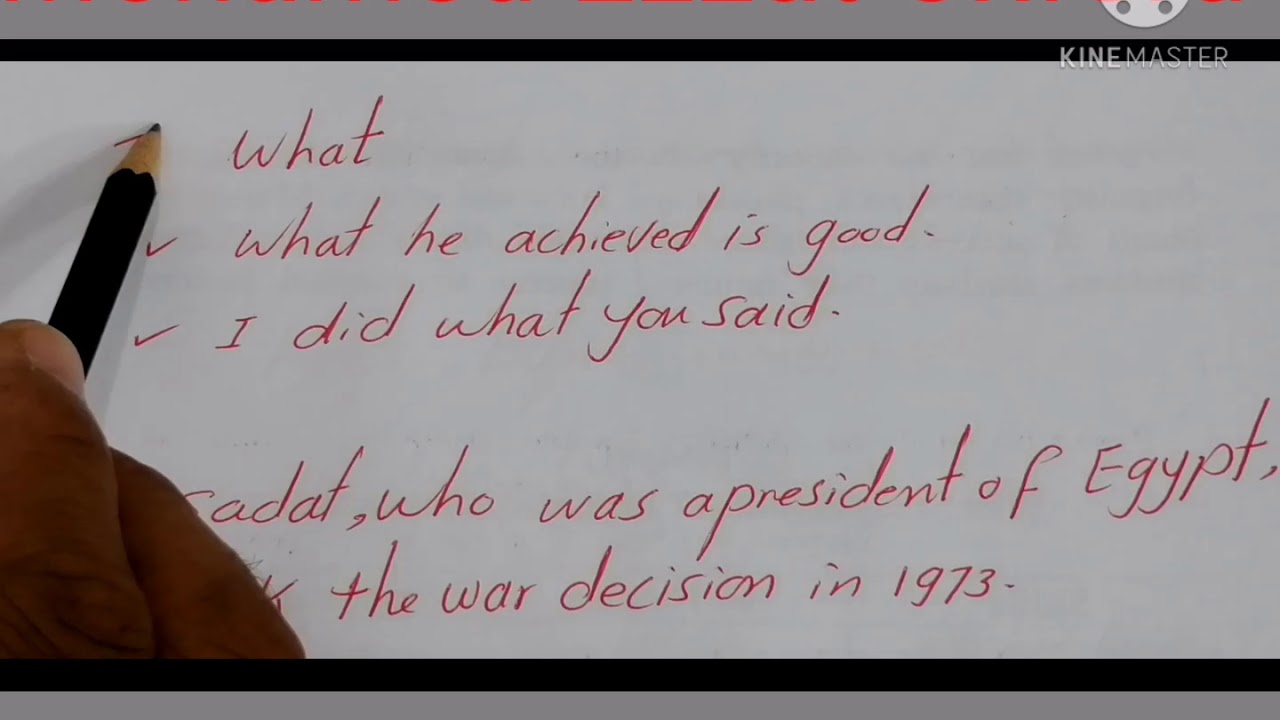 KINEMASTER
What
✓ What he achieved is good.
✓ I did what you said.
sadat, who was a president of Egypt,
the war decision in 1973.